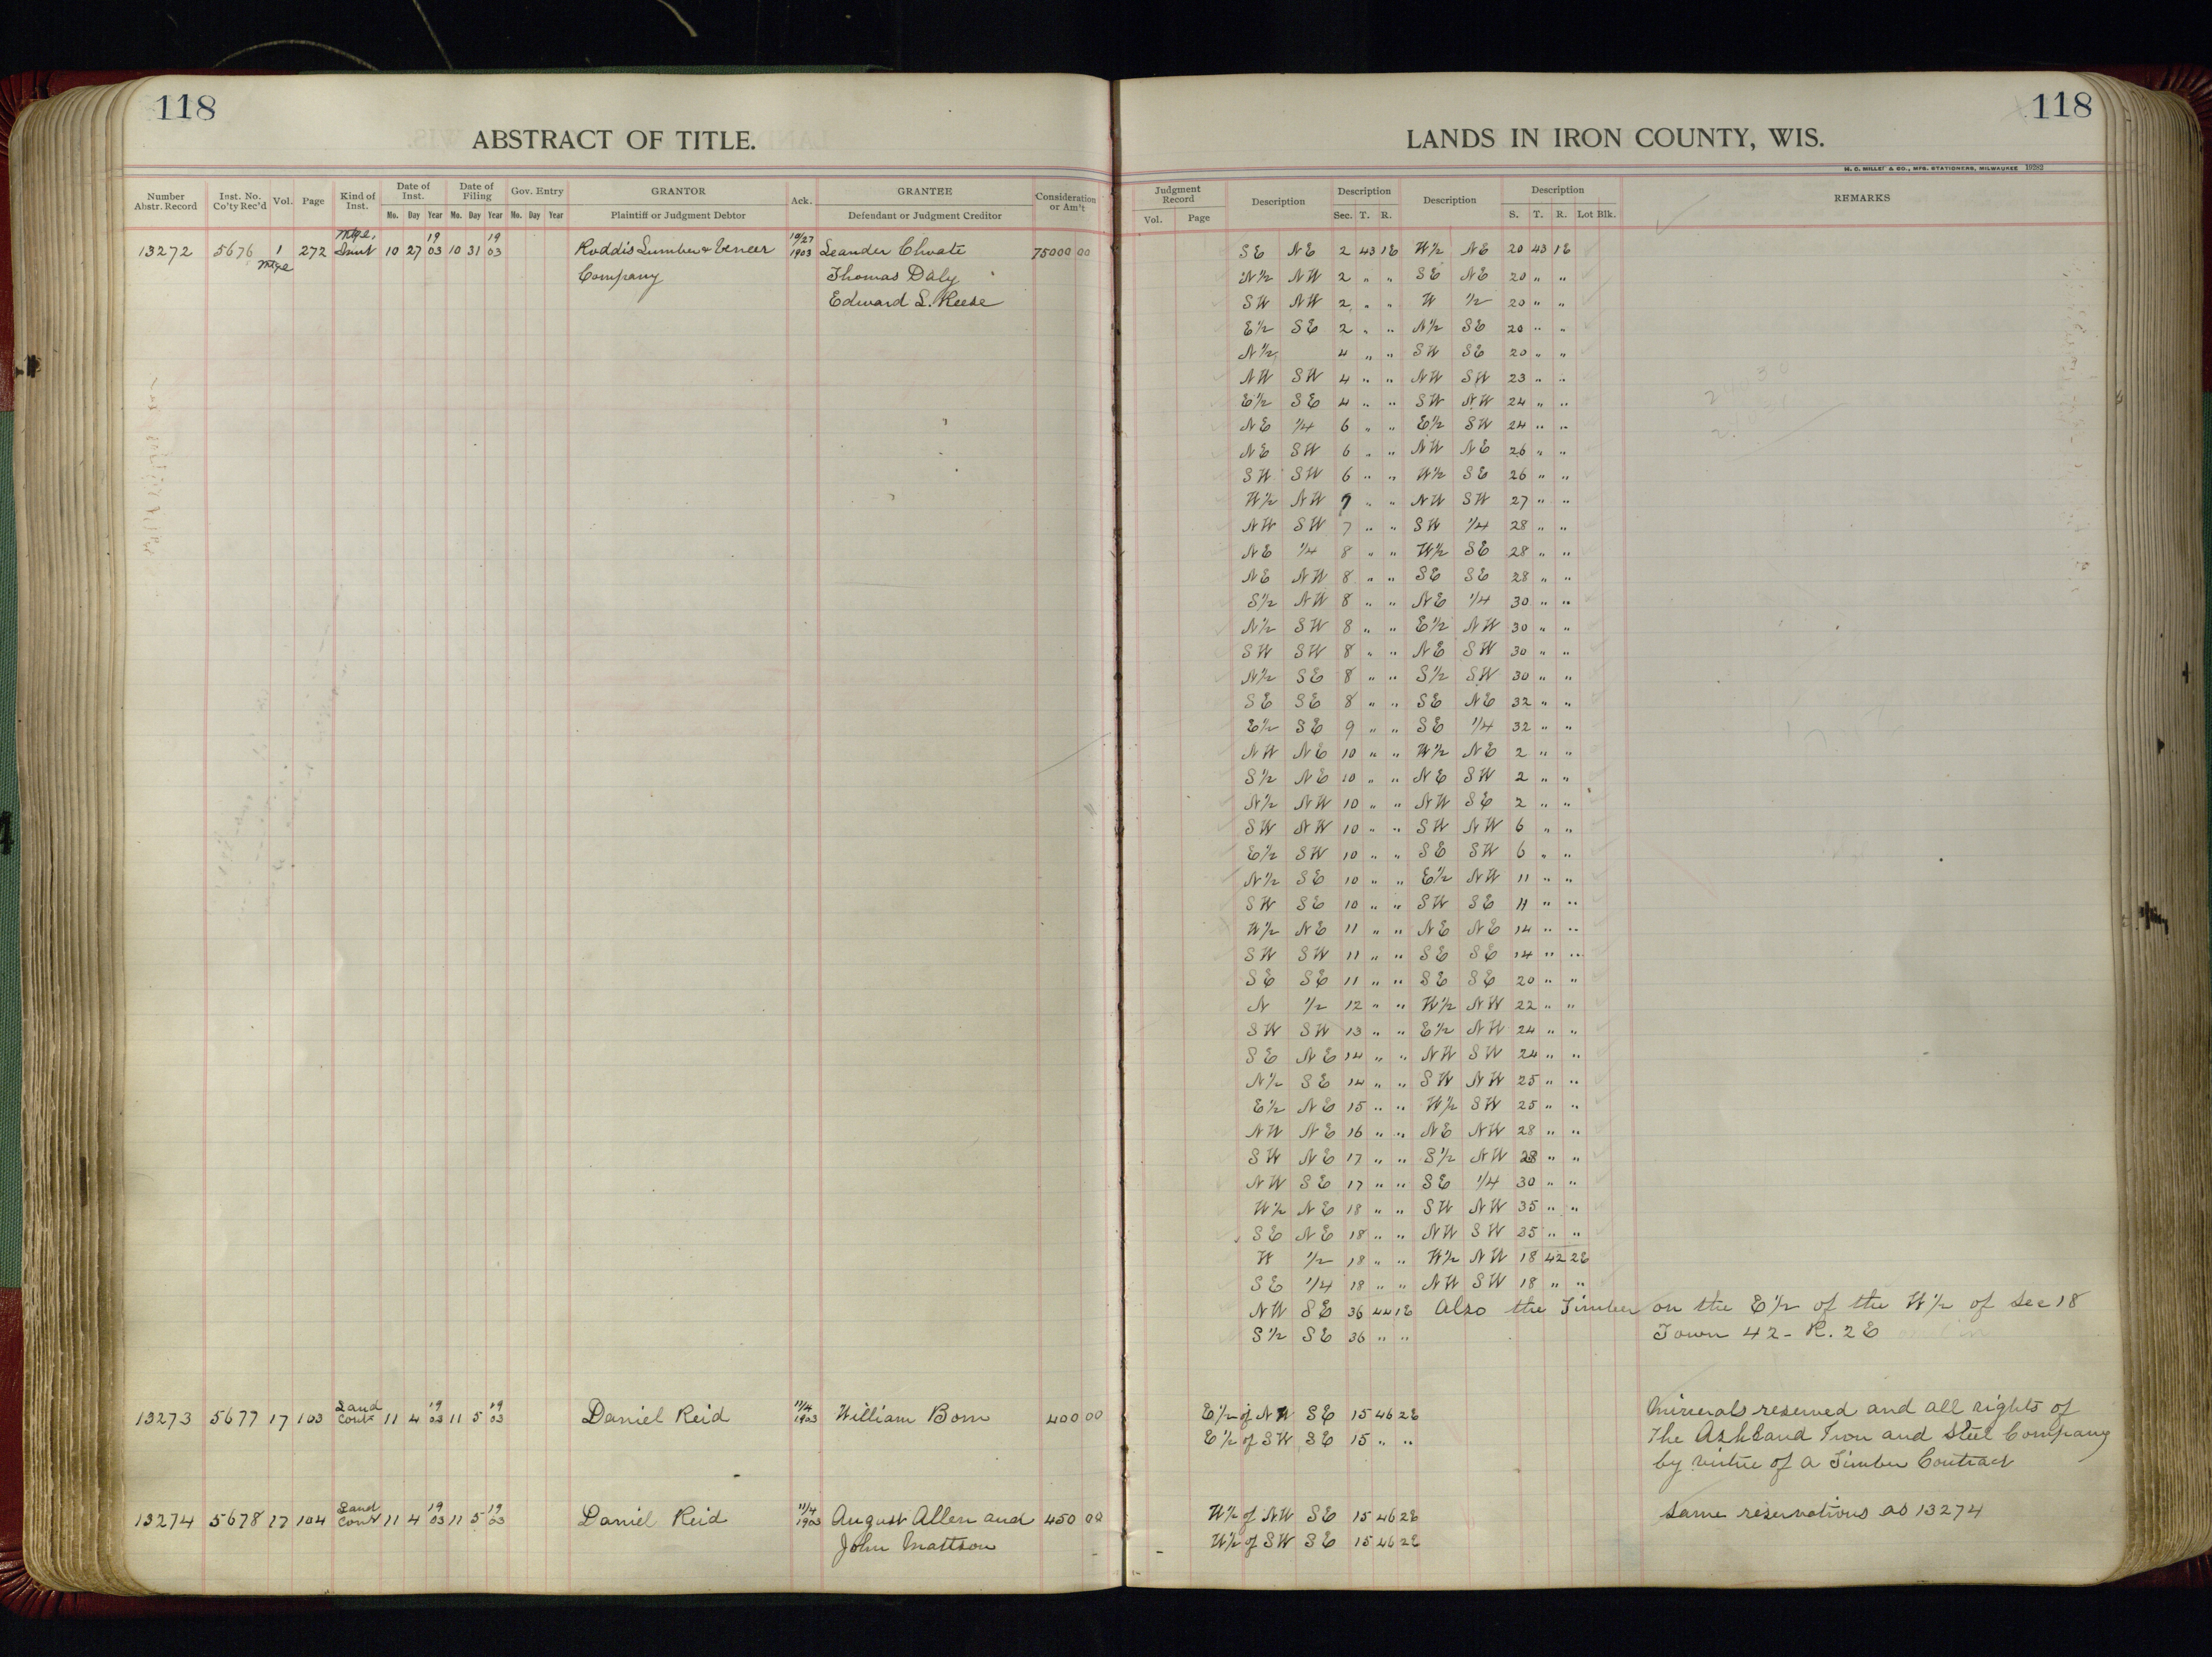 118
ABSTRACT OF TITLE.
Number Abstr. Record | Inst. No. Co'ty Rec'd | Vol. | Page | Kind of Inst. | Date of Inst. Mo. Day Year | Date of Filing Mo. Day Year | Gov. Entry Mo. Day Year | GRANTOR Plaintiff or Judgment Debtor | Ack. | GRANTEE Defendant or Judgment Creditor | Consideration or Am't
13272 5676 1 Mtge 272 Mtge. Inst 10 27 1903 10 31 1903 Roddis Lumber & Veneer 10/27 1903 Leander Choate 75000 00
Company Thomas Daly
Edward L. Reese
13273 5677 17 103 Land Cont 11 4 1903 11 5 1903 Daniel Reid 11/4 1903 William Bom 400 00
13274 5678 17 104 Land Cont 11 4 1903 11 5 1903 Daniel Reid 11/4 1903 August Allen and 450 00
John Mattson
118
LANDS IN IRON COUNTY, WIS.
M. C. MILLER & CO., MFG. STATIONERS, MILWAUKEE 19282
Judgment Record Vol. Page | Description | Description Sec. T. R. | Description | Description S. T. R. Lot Blk. | REMARKS
SE NE 2 43 1E W½ NE 20 43 1E
N½ NW 2 " " SE NE 20 " "
SW NW 2 " " W ½ 20 " "
E½ SE 2 " " N½ SE 20 " "
N½ 4 " " SW SE 20 " "
NW SW 4 " " NW SW 23 " "
E½ SE 4 " " SW NW 24 " "
NE ¼ 6 " " E½ SW 24 " "
NE SW 6 " " NW NE 26 " "
SW SW 6 " " W½ SE 26 " "
W½ NW 7 " " NW SW 27 " "
NW SW 7 " " SW ¼ 28 " "
NE ¼ 8 " " W½ SE 28 " "
NE NW 8 " " SE SE 28 " "
S½ NW 8 " " NE ¼ 30 " "
N½ SW 8 " " E½ NW 30 " "
SW SW 8 " " NE SW 30 " "
N½ SE 8 " " S½ SW 30 " "
SE SE 8 " " SE NE 32 " "
E½ SE 9 " " SE ¼ 32 " "
NW NE 10 " " W½ NE 2 " "
S½ NE 10 " " NE SW 2 " "
N½ NW 10 " " NW SE 2 " "
SW NW 10 " " SW NW 6 " "
E½ SW 10 " " SE SW 6 " "
N½ SE 10 " " E½ NW 11 " "
SW SE 10 " " SW SE 11 " "
W½ NE 11 " " NE NE 14 " "
SW SW 11 " " SE SE 14 " "
SE SE 11 " " SE SE 20 " "
N ½ 12 " " W½ NW 22 " "
SW SW 13 " " E½ NW 24 " "
SE NE 14 " " NW SW 24 " "
N½ SE 14 " " SW NW 25 " "
E½ NE 15 " " W½ SW 25 " "
NW NE 16 " " NE NW 28 " "
SW NE 17 " " S½ NW 28 " "
NW SE 17 " " SE ¼ 30 " "
W½ NE 18 " " SW NW 35 " "
SE NE 18 " " NW SW 35 " "
W ½ 18 " " W½ NW 18 42 2E
SE ¼ 18 " " NW SW 18 " "
NW SE 36 44 1E Also the Timber on the E½ of the W½ of Sec 18
S½ SE 36 " " Town 42 - R. 2E
E½ of NW SE 15 46 2E Minerals reserved and all rights of
E½ of SW SE 15 " " The Ashland Iron and Steel Company
by virtue of a Timber Contract
W½ of NW SE 15 46 2E Same reservations as 13274
W½ of SW SE 15 46 2E